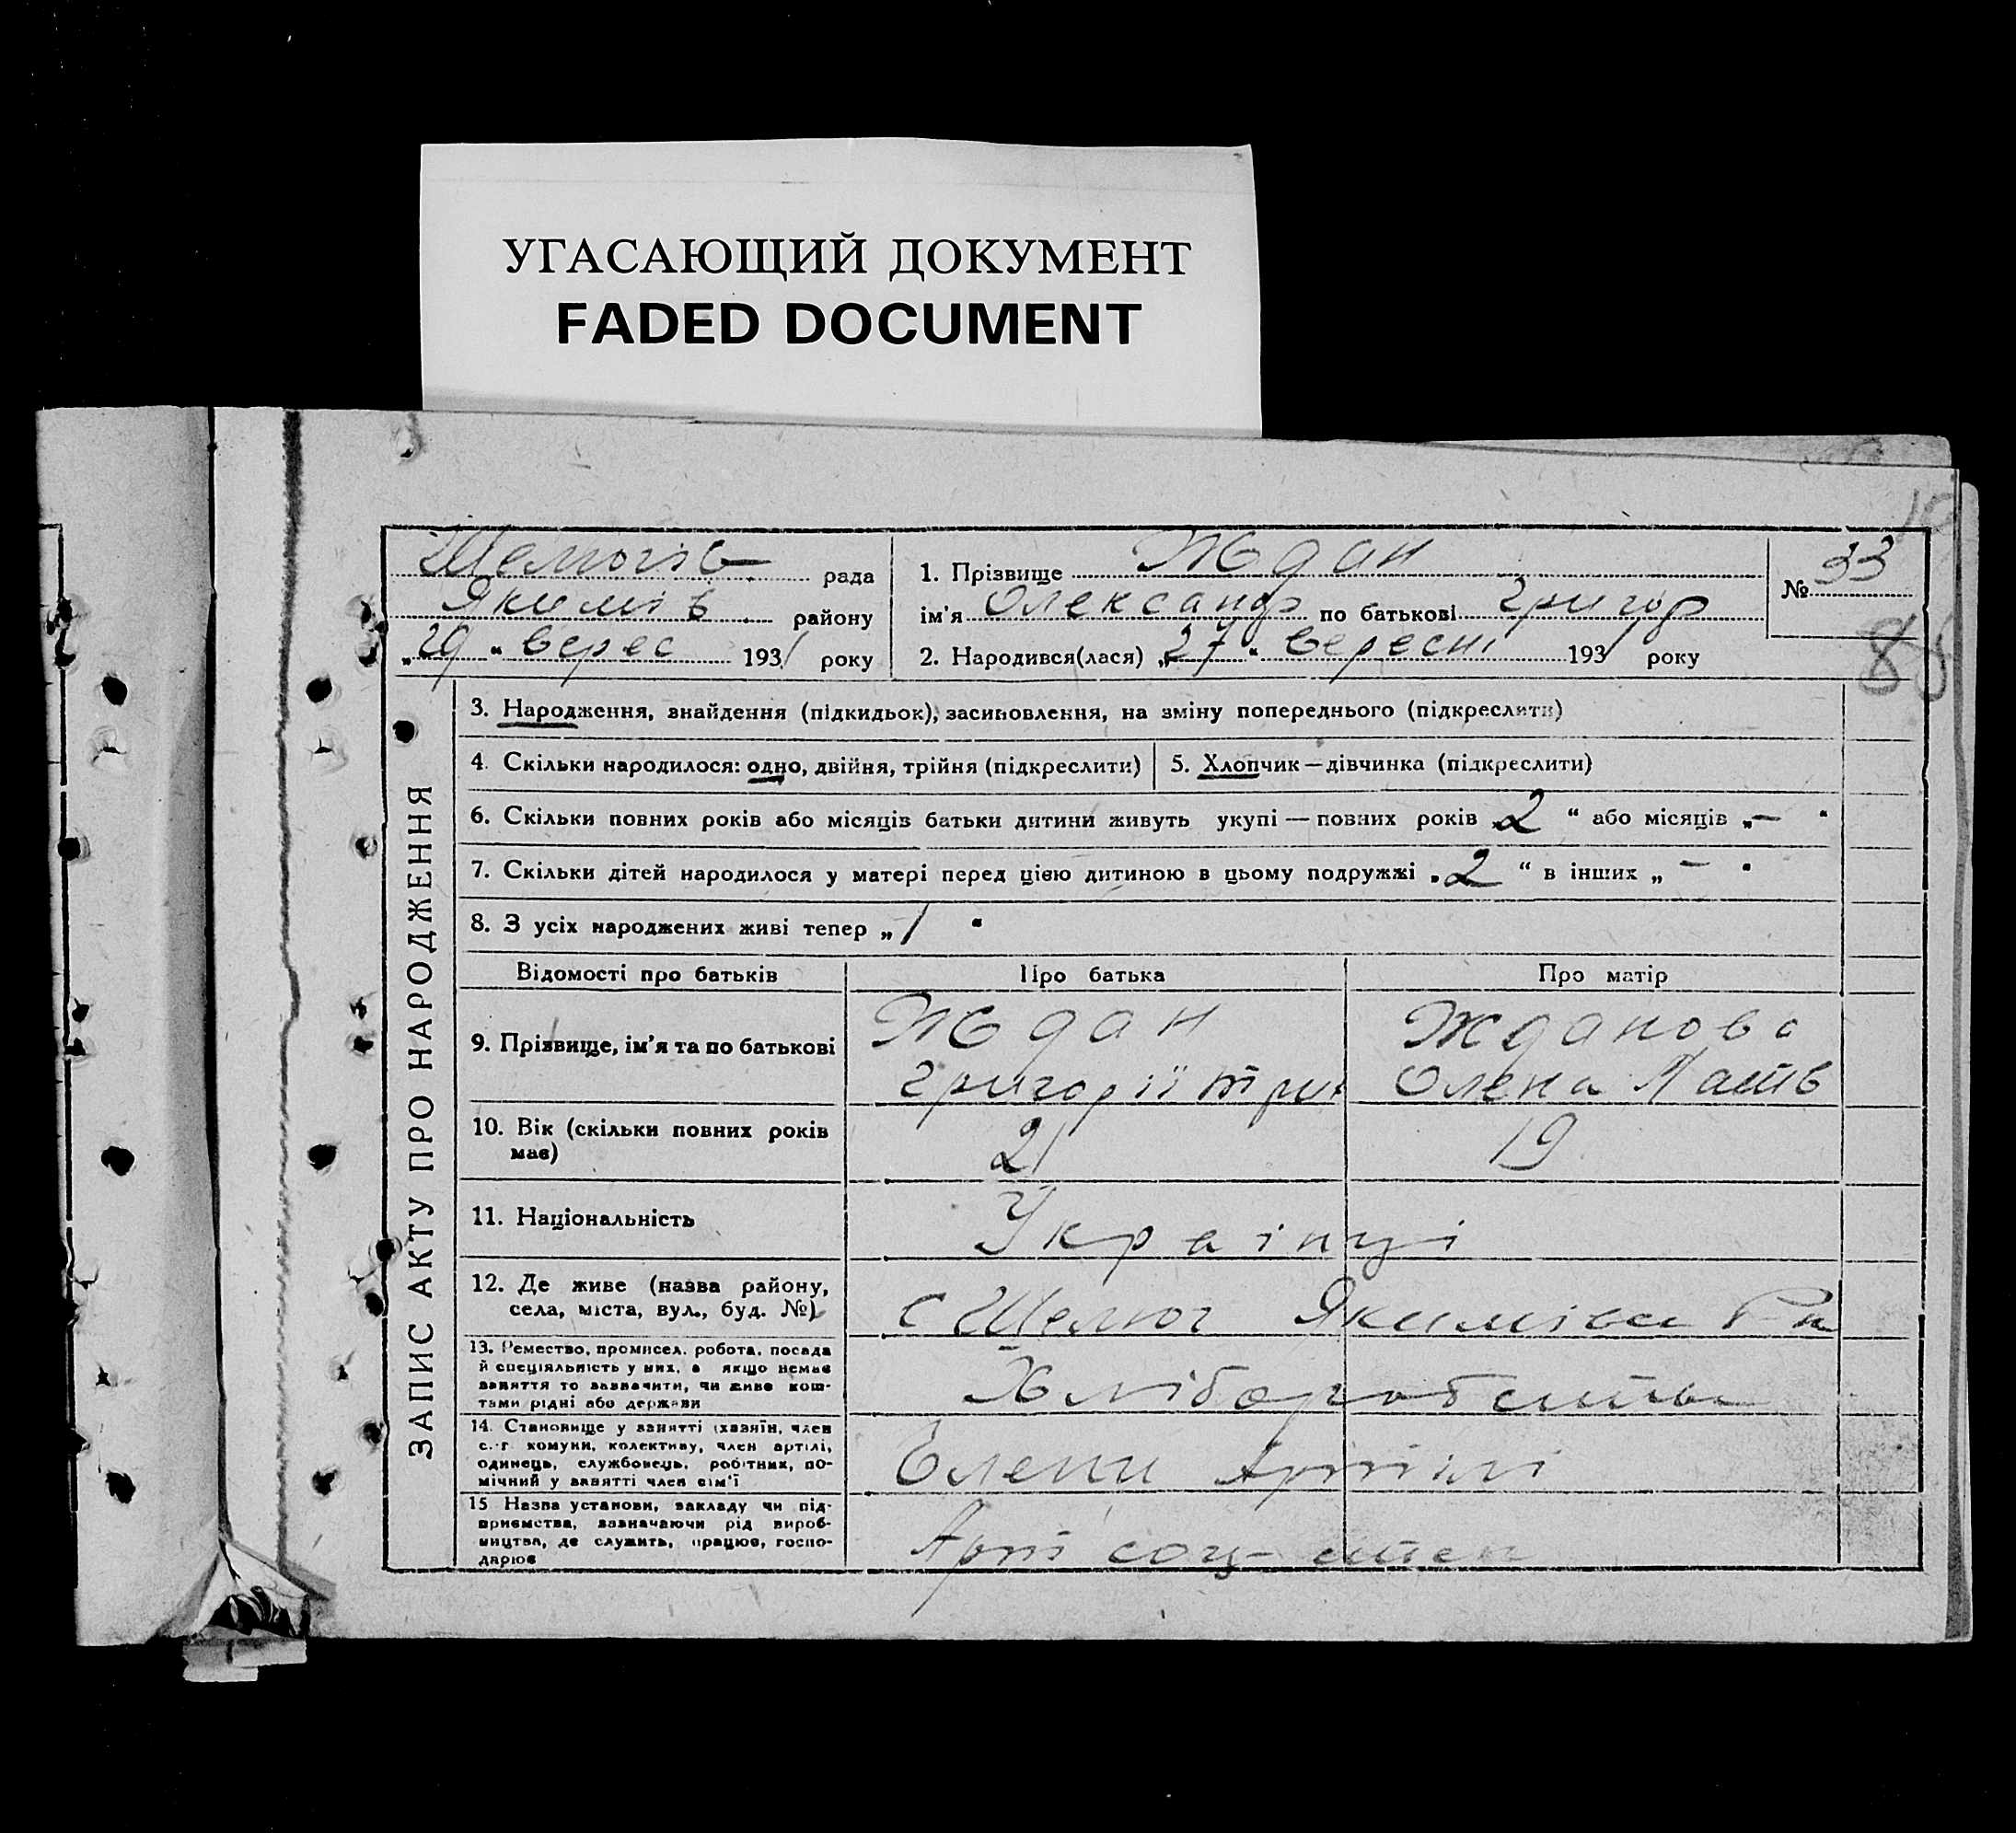 УГАСАЮЩИЙ ДОКУМЕНТ
FADED DOCUMENT
рада
Якимів району
„29“ верес 1931 року
1. Прізвище Ждан
ім'я Олександр по батькові Григор
2. Народився(лася) „27“ вересні 1931 року
№ 33
88
ЗАПИС АКТУ ПРО НАРОДЖЕННЯ
3. Народження, знайдення (підкидьок), засиновлення, на зміну попереднього (підкреслити)
4. Скільки народилося: одно, двійня, трійня (підкреслити)
5. Хлопчик — дівчинка (підкреслити)
6. Скільки повних років або місяців батьки дитини живуть укупі — повних років „2“ або місяців „—“
7. Скільки дітей народилося у матері перед цією дитиною в цьому подружжі „2“ в інших „—“
8. З усіх народжених живі тепер „1“
Відомості про батьків
Про батька
Про матір
9. Прізвище, ім'я та по батькові
Ждан
Григорії
Жданова
Олена
10. Вік (скільки повних років
має)
21
19
11. Національність
Українці
12. Де живе (назва району,
села, міста, вул., буд. №)
с Шелюг
13. Ремество, промисел, робота, посада
й спеціяльність у них, а якщо немає
заняття то зазначити, чи живе кош-
тами рідні або держави
14. Становище у занятті (хазяїн, член
с.-г комуни, колективу, член артілі,
одинець, службовець, робітник, по-
мічний у занятті член сім'ї
Члени Артілі
15 Назва установи, закладу чи під-
приємства, зазначаючи рід вироб-
ництва, де служить, працює, госпо-
дарює
Арті соц-